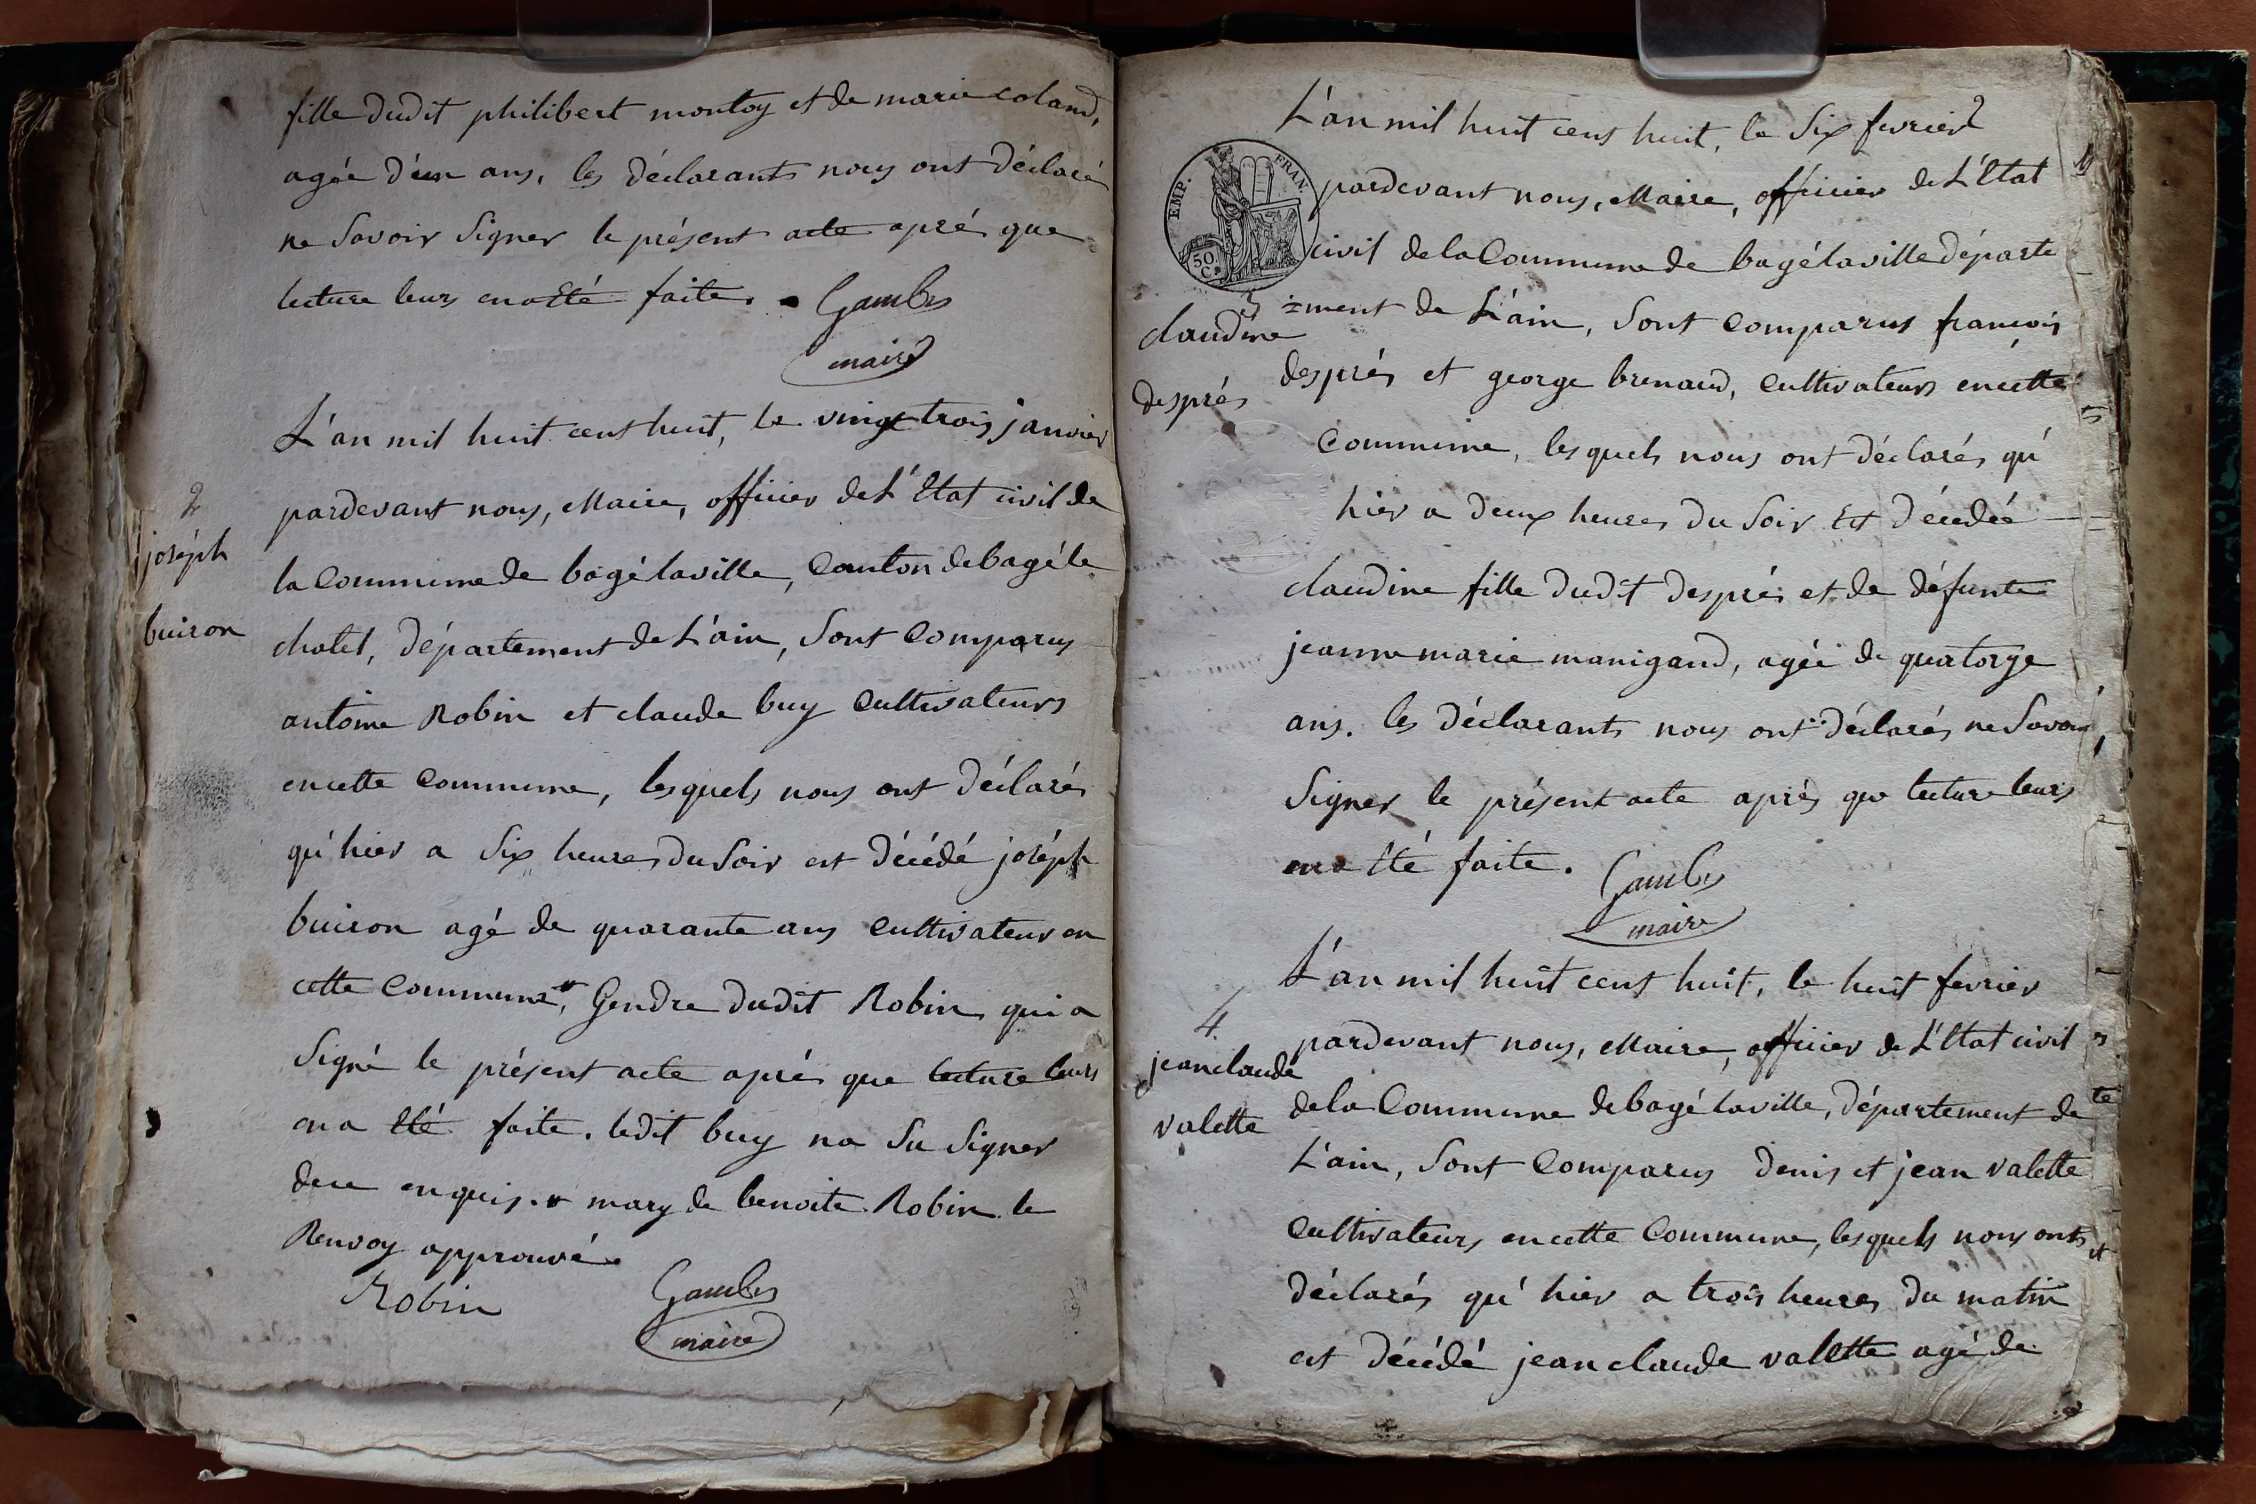 fille dudit philibert montoy et de marie coland,
agée d'un ans, les déclarants nous ont déclaré
ne Savoir Signer le présent acte apré que
lecture leurs en a Eté faite. Gambes
maire
2
joséph
buiron
L'an mil huit cent huit, le vingt trois janvier
pardevant nous, Maire, officier de L'Etat civil de
la Commune de bagé laville, Canton de bagé le
chatel, département de L'ain, Sont Comparus
antoine Robin et claude buy Cultivateurs
en cette Commune, lesquels nous ont déclarés
qu'hier a Six heures du Soir est décédé joséph
buiron agé de quarante ans Cultivateur en
cette Commune, Gendre dudit Robin qui a
Signé le présent acte aprés que lecture leurs
en a Eté faite. ledit buy na Su Signer
de ce enquis. mary de benoite Robin le
Renvoy approuvé.
Robin Gambes
maire
EMP. FRAN.
50 C.
3
claudine
després
L'an mil huit cent huit, le Six fevrier
pardevant nous, Maire, officier de L'Etat
civil de la Commune de bagé laville départe
=ment de L'ain, Sont Comparus françois
després et george brenaud, Cultivateurs en cette
Commune, lesquels nous ont déclarés qu'
hier a deux heures du Soir Est décedée
claudine fille dudit després et de défunte
jeanne marie manigand, agée de quatorze
ans. les déclarants nous ont déclarés ne Savoir
Signer le présent acte aprés que lecture leurs
en a Eté faite. Gambes
maire
4
jean claude
valette
L'an mil huit cent huit, le huit fevrier
pardevant nous, Maire, officier de L'Etat civil
de la Commune de bagé laville, département de
L'ain, Sont Comparus denis et jean valette
Cultivateurs en cette Commune, lesquels nous ont
déclarés qu'hier a trois heures du matin
est décédé jean claude vallette agé de